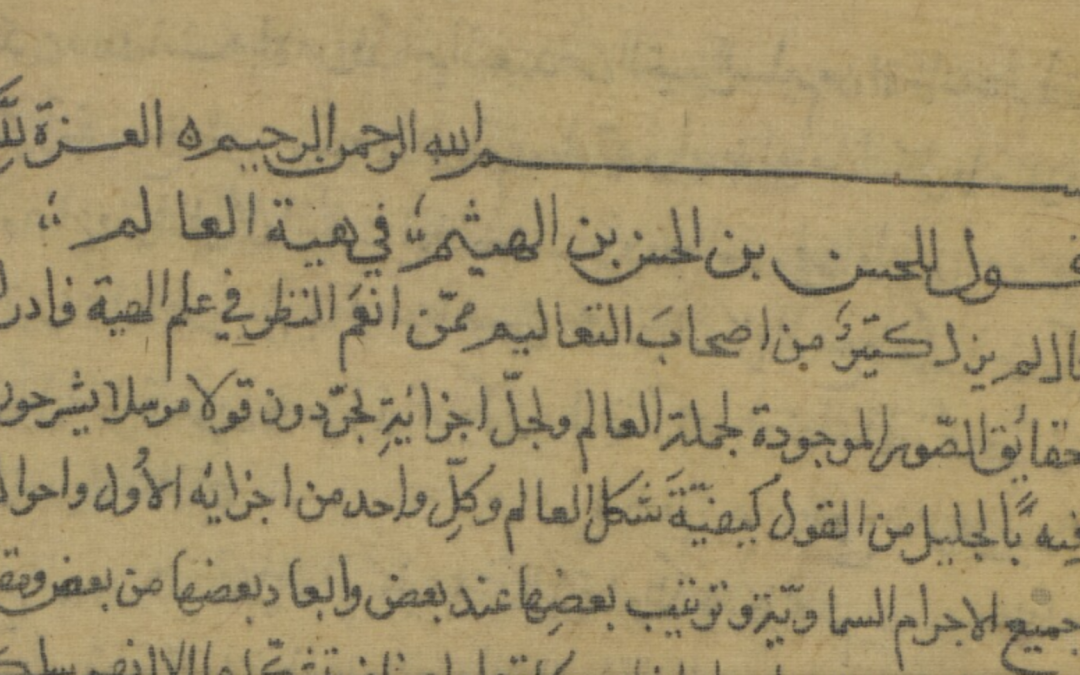 بسم الله الرحمن الرحيم ه العزة لله
قول للحسن بن الحسن بن الهيثم في هيئة العالم
لم يزل كثيرَ من اصحابَ التعاليم ممّن انعَم النظر في علم الهية فادر
حقائق الصّور الموجودة لجملة العالم ولجلّ اجزائيةِ يجرّدون قولا مرسلا يشرحون
فيه بالجليل من القول كيفيّةَ شكل العالم وكلِّ واحد من اجزائه الأول واحوال
جميع الاجرام السماويّة وترتيب بعضِها عند بعض وابعاد بعضها من بعض